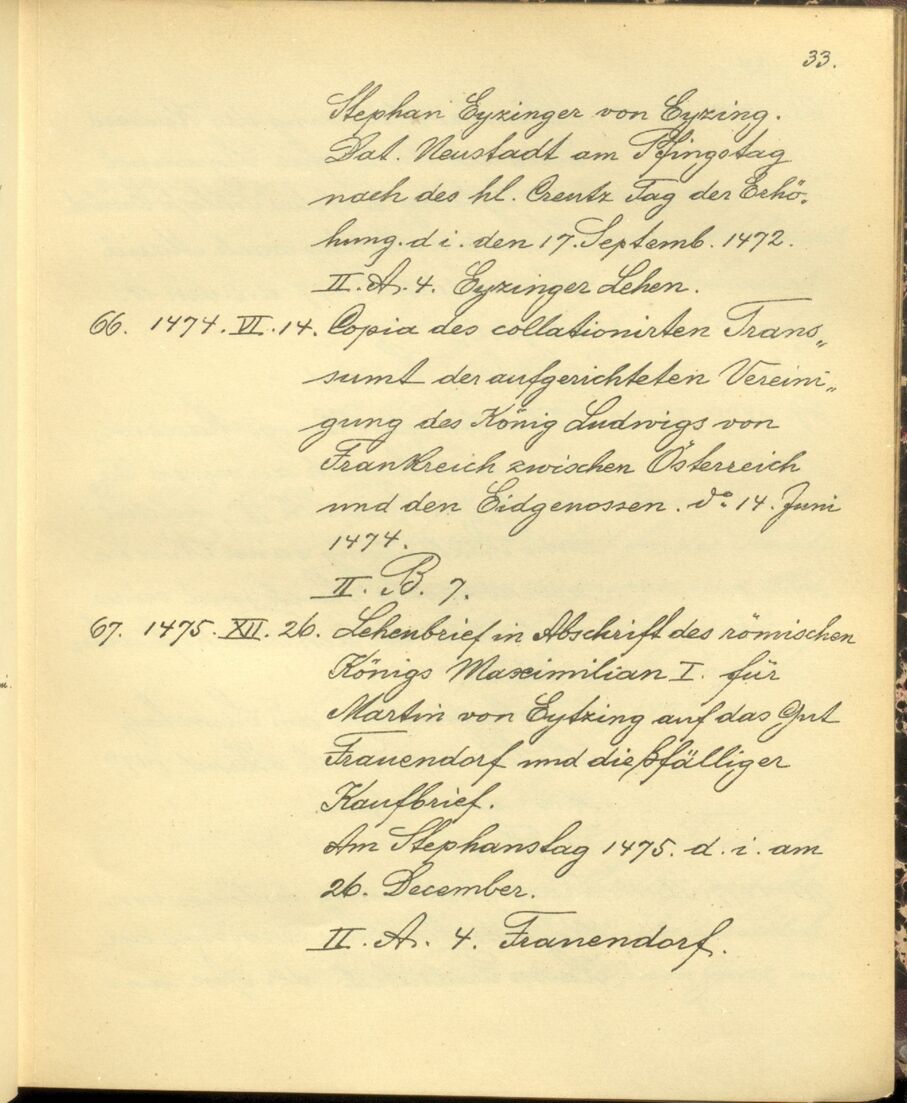 33.
Stephan Eyzinger von Eyzing.
Dat. Neustadt am Pfingstag
nach des hl. Creutz Tag der Erhö-
hung. d i. den 17. Septemb. 1472.
II. A. 4. Eyzinger Lehen.
66. 1474. VI. 14. Copia des collationirten Trans„
sumt der aufgerichteten Vereini„
gung des König Ludwigs von
Frankreich zwischen Österreich
und den Eidgenossen. do 14. Juni
1474.
II. B. 7.
67. 1475. XII. 26. Lehenbrief in Abschrift des römischen
Königs Maximilian I. für
Martin von Eytzing auf das Gut
Frauendorf und dießfälliger
Kaufbrief.
Am Stephanstag 1475. d. i. am
26. December.
II. A. 4. Frauendorf.